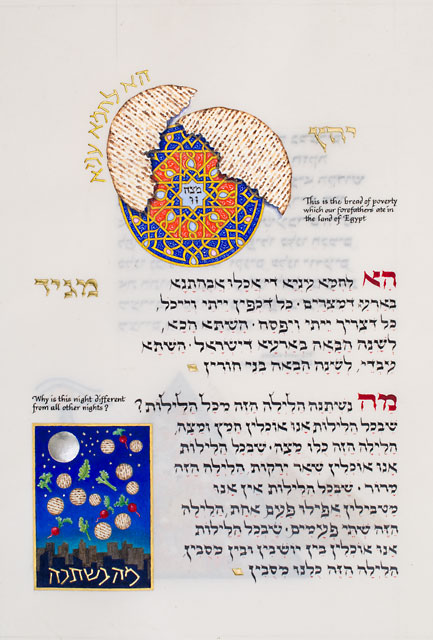 הא לחמא עניא
יחץ
מצה
זו
This is the bread of poverty
which our forefathers ate in
the land of Egypt
מגיד
הא לחמא עניא די אכלו אבהתנא
בארעא דמצרים· כל דכפין ייתי וייכל,
כל דצריך ייתי ויפסח· השתא הכא,
לשנה הבאה בארעא דישראל· השתא
עבדי, לשנה הבאה בני חורין
Why is this night different
from all other nights?
מה נשתנה הלילה הזה מכל הלילות?
שבכל הלילות אנו אוכלין חמץ ומצה,
הלילה הזה כלו מצה· שבכל הלילות
אנו אוכלין שאר ירקות הלילה הזה
מרור· שבכל הלילות אין אנו
מטבילין אפילו פעם אחת, הלילה
הזה שתי פעמים· שבכל הלילות
אנו אוכלין בין יושבין ובין מסבין
הלילה הזה כלנו מסבין
מה נשתנה